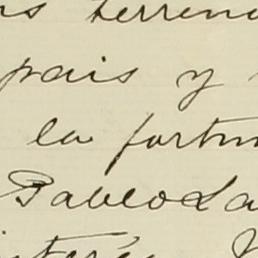 terren
pais y
la fortu
Pablo La
interés